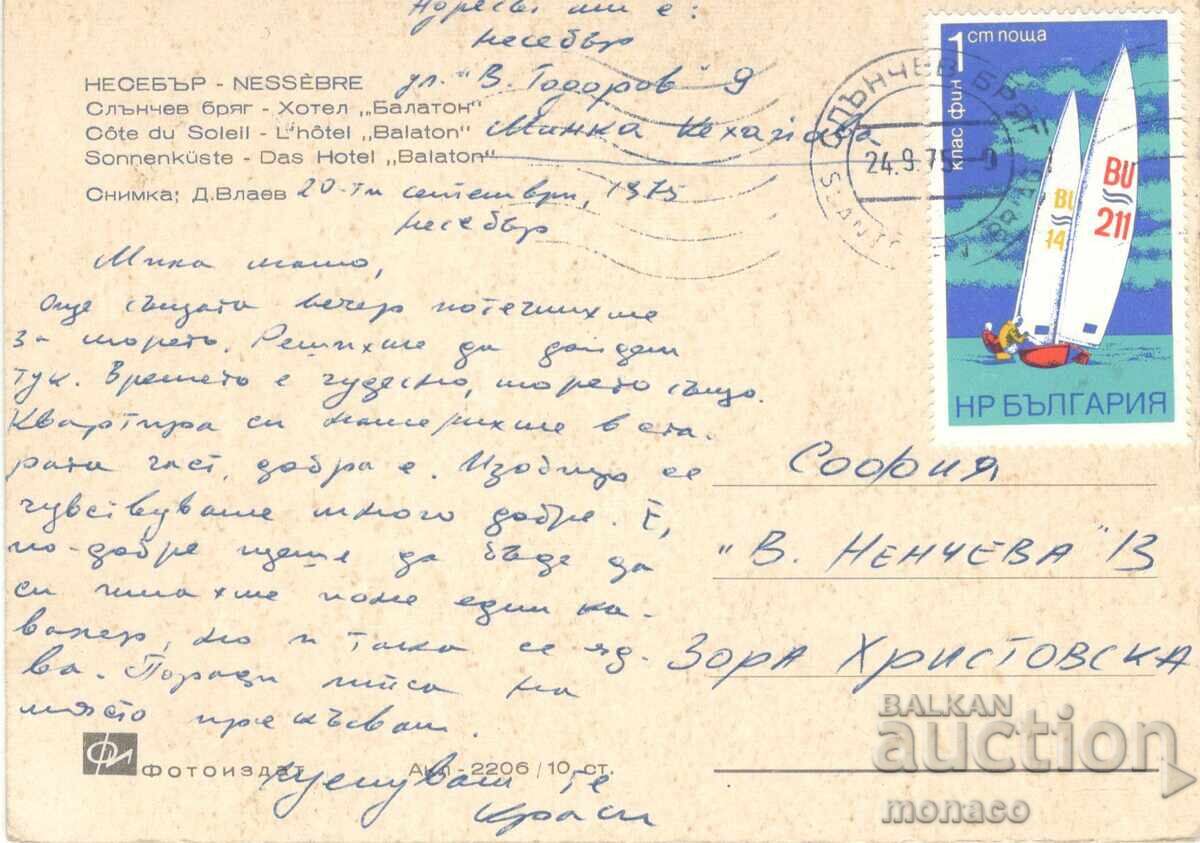 Адресът ми е:
Несебър
ул. "В. Тодоров" 9
Минка Кехаиова
НЕСЕБЪР - NESSÈBRE
Слънчев бряг - Хотел „Балатон"
Côte du Soleil - L'hôtel „Balaton"
Sonnenküste - Das Hotel „Balaton"
Снимка: Д.Влаев
20-ти септември, 1975
Несебър
Мила
Още същата вечер потеглихме
за морето. Решихме да дойдем
тук. Времето е чудесно, морето също.
Квартира си намерихме в ста-
рата част, добра е. Изобщо се
чувствуваме много добре. Е,
по-добре щеше да бъде да
си имахме поне един ка-
валер, но и така се яд-
ва. Поради липса на
място прекъсвам.
Целувам те
Краси
ФОТОИЗДАТ
Акл-2206/10 ст.
1 ст поща
клас фин
BU
14
BU
211
НР БЪЛГАРИЯ
СЛЪНЧЕВ БРЯГ
24.9.75
София
"В. Ненчева" 13
Зора Христовска
BALKAN
auction
monaco